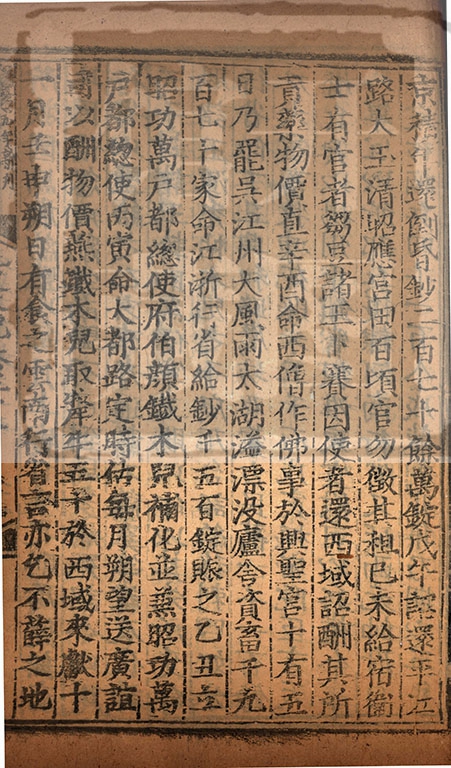 京積年還倒昏鈔二百七十餘萬錠戊午詔還平江
路大玉清昭應宮田百頃官勿徵其租己未給宿衞
士有官者芻豆諸王卜賽因使者還西域詔酬其所
貢藥物價直辛酉命西僧作佛事於興聖宮十有五
日乃罷吳江州大風雨太湖溢漂没廬舍資畜千九
百七十家命江浙行省給鈔千五百錠賑之乙丑立
昭功萬戸都總使府伯顔鐵木兒補化並兼昭功萬
戸都總使丙寅命大都路定時估每月朔望送廣誼
司以酬物價燕鐵木兒取犛牛五十於西域來獻十
一月壬申朔日有食之雲南行省言亦乞不薛之地